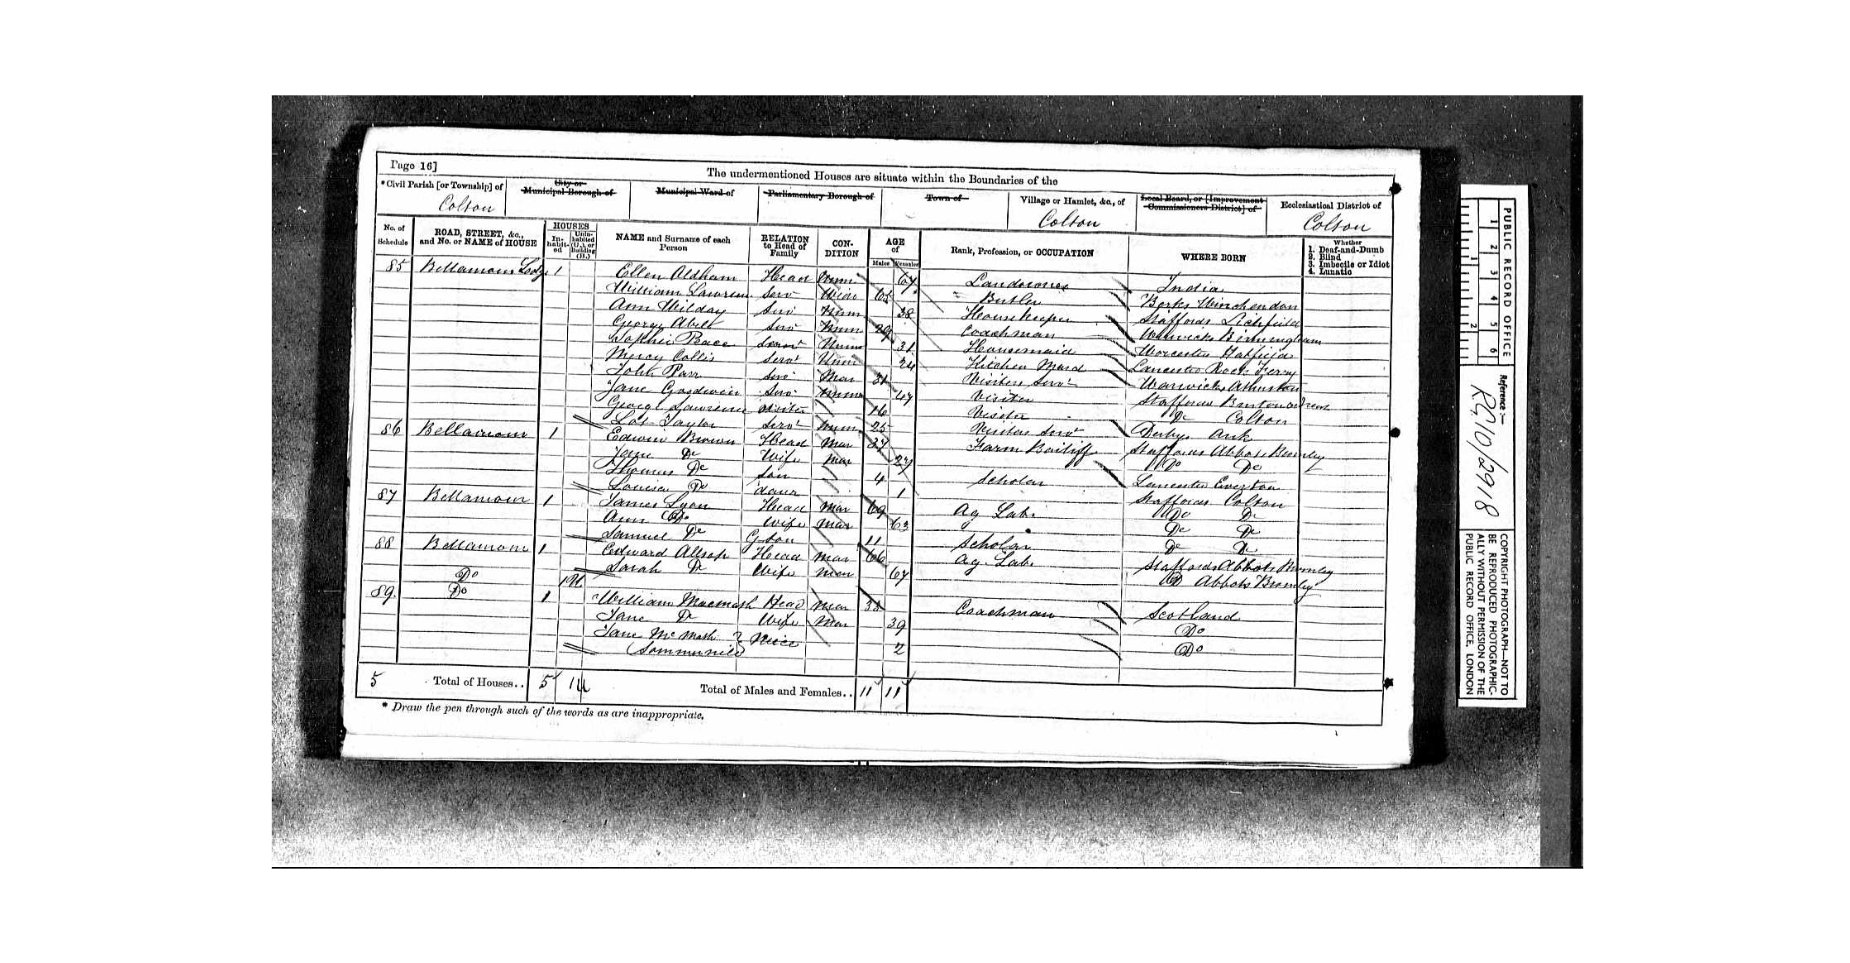 Page 16]
The undermentioned Houses are situate within the Boundaries of the
*Civil Parish [or Township] of City or Municipal Borough of Municipal Ward of Parliamentary Borough of Town of Village or Hamlet, &c., of Local Board, or [Improvement Commissioners District] of Ecclesiastical District of
Colton Colton Colton
No. of Schedule ROAD, STREET, &c., and No. or NAME of HOUSE HOUSES Inhabited Uninhabited (U.), or Building (B.) NAME and Surname of each Person RELATION to Head of Family CONDITION AGE of Males Females Rank, Profession, or OCCUPATION WHERE BORN Whether 1. Deaf-and-Dumb 2. Blind 3. Imbecile or Idiot 4. Lunatic
85 Bellamour Lodge 1 Ellen Oldham Head Unm 67 Landowner India
William Lawrence Serv 65 Butler Berks
Ann Wilday Serv Unm 38 Housekeeper Staffords Lichfield
George Serv Unm 29 Coachman Warwicks Birmingham
Servt Unm 31 Housemaid Worcester
Mercy Collis Servt Unm 24 Kitchen Maid Lancaster Rock Ferry
John Parr Serv Mar 31 Visitors Servt Warwicks
Jane Goodwin Serv Unm 47 Visitor Staffords
George Lawrence Visitor 16 Visitor Do Colton
Taylor Servt Unm 25 Visitors Servt Derbys
86 Bellamour 1 Edwin Brown Head Mar 37 Farm Bailiff Staffords Abbots Bromley
Jane Do Wife Mar 27 Do Do
Thomas Do Son 4 Scholar Lancaster Everton
Louisa Do Daur 1 Staffords Colton
87 Bellamour 1 James Lyon Head Mar 69 Ag Lab. Do Do
Ann Do Wife Mar 63 Do Do
Samuel Do G Son 11 Scholar Do Do
88 Bellamour 1 Edward Allsop Head Mar 66 Ag. Lab. Staffords Abbots Bromley
Sarah Do Wife Mar 67 Do Abbots Bromley
Do 1U
89 Do 1 William Head Mar 38 Coachman Scotland
Jane Do Wife Mar 39 Do
Jane McMath Niece 2 Do
Sommerville
5 Total of Houses.. 5 1U Total of Males and Females.. 11 11
* Draw the pen through such of the words as are inappropriate.
PUBLIC RECORD OFFICE
1 2 3 4 5 6
1 2
Reference :-
RG10/2918
COPYRIGHT PHOTOGRAPH—NOT TO BE REPRODUCED PHOTOGRAPHICALLY WITHOUT PERMISSION OF THE PUBLIC RECORD OFFICE, LONDON